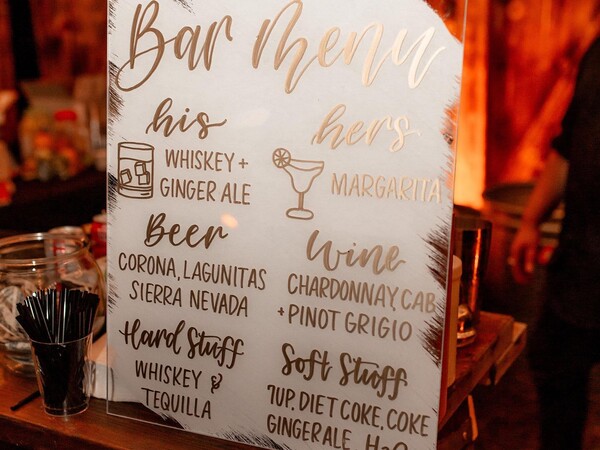 Bar Menu
his
WHISKEY +
GINGER ALE
hers
MARGARITA
Beer
CORONA, LAGUNITAS
SIERRA NEVADA
Wine
CHARDONNAY, CAB
+ PINOT GRIGIO
Hard Stuff
WHISKEY &
TEQUILLA
Soft Stuff
7UP, DIET COKE, COKE
GINGER ALE H2O